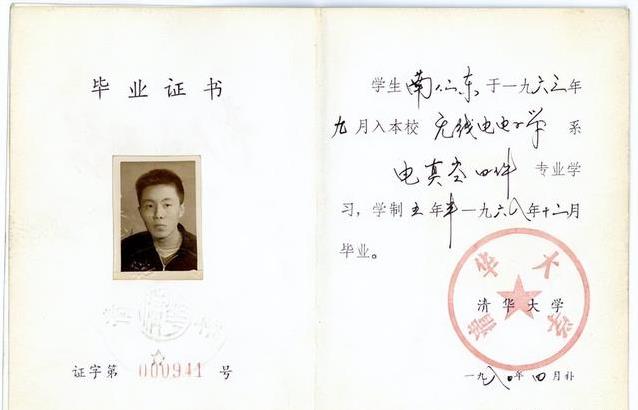 毕业证书
证字第 000941 号
学生 南仙东 于一九六三年
九月入本校 无线电电子学 系
电真空四件 专业学
习，学制 五年半 一九六八年十二月
毕业。
清华大学
清华大学
一九八〇年四月补